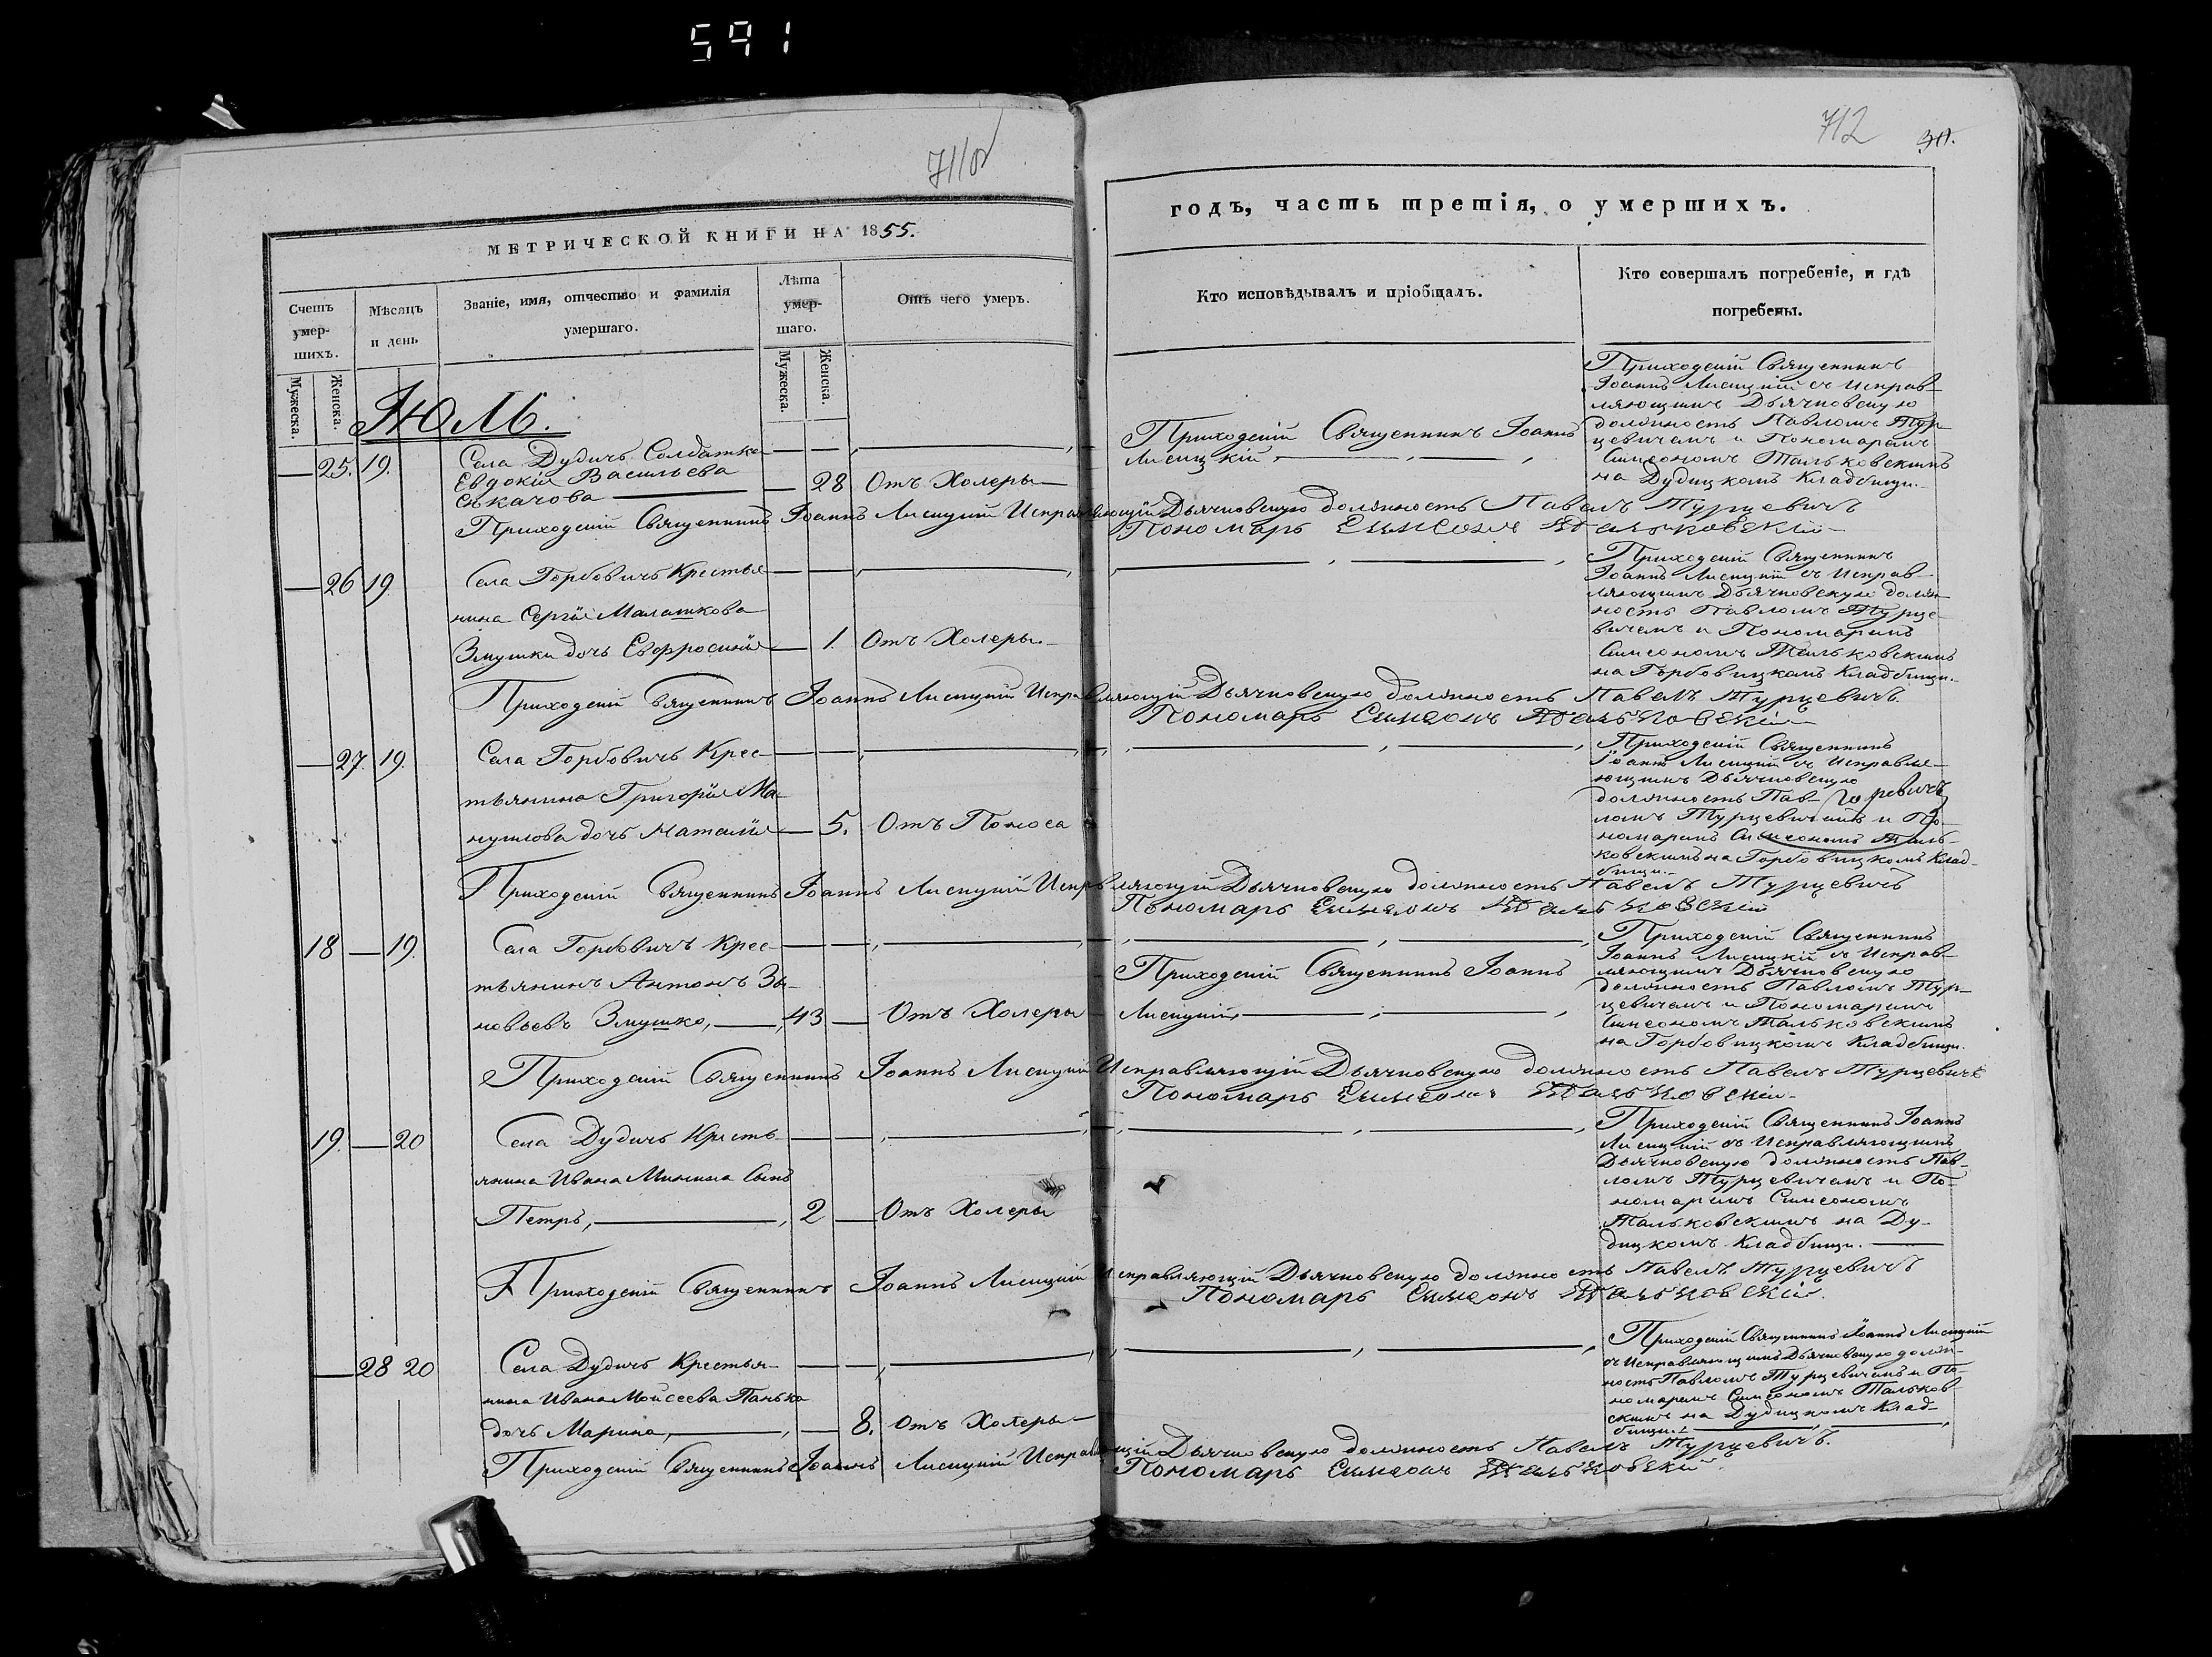 591
711об
712
МЕТРИЧЕСКОЙ КНИГИ НА 1855.
годъ, часть третія, о умершихъ.
Счетъ умер-шихъ.
Мѣсяцъ и день
Званіе, имя, отчество и фамилія умершаго.
Лѣта умер-шаго.
Отъ чего умеръ.
Кто исповѣдывалъ и пріобщалъ.
Кто совершалъ погребеніе, и гдѣ погребены.
Мужеска.
Женска.
Мужеска.
Женска.
Іюль.
25. 19.
Села Дудичъ Солдатка
Евдокія Васильева
Сѣкачова
28
Отъ Холеры
Приходскій Священникъ Іоаннъ
Лисицкій,
Приходскій Священникъ
Іоаннъ Лисицкій съ Исправ-
ляющимъ Дьячковскую
должность Павломъ Тур-
цевичемъ и Пономаремъ
Симеономъ Тальковскимъ
на Дудицкомъ Кладбищи.
Приходскій Священникъ Іоаннъ Лисицкій Исправляющій Дьячковскую должность Павелъ Турцевичъ
Пономарь Симеонъ Тальковскій
26 19.
Села Горбовичъ Крестья-
нина Сергія Малашкова
Змушки дочь Евфросинія
1.
Отъ Холеры
Приходскій Священникъ
Іоаннъ Лисицкій съ Исправ-
ляющимъ Дьячковскую долж-
ность Павломъ Турце-
вичемъ и Пономаремъ
Симеономъ Тальковскимъ
на Горбовицкомъ Кладбищи.
Приходскій Священникъ Іоаннъ Лисицкій Исправляющій Дьячковскую должность Павелъ Турцевичъ.
Пономарь Симеонъ Тальковскій
27. 19.
Села Горбовичъ Крес-
тьянина Григорія Ма-
нуилова дочь Наталія
5.
Отъ Поноса
Приходскій Священникъ
Іоаннъ Лисицкій съ Исправля-
ющимъ Дьячковскую
должность Пав-
ломъ Турцевичемъ и По-
номаремъ Симеономъ Таль-
ковскимъ на Горбовицкомъ Клад-
бищи.
Приходскій Священникъ Іоаннъ Лисицкій Исправляющій Дьячковскую должность Павелъ Турцевичъ
Пономарь Симеонъ Тальковскій
18 19.
Села Горбовичъ Крес-
тьянинъ Антонъ Зи-
новьевъ Змушко,
43
Отъ Холеры
Приходскій Священникъ Іоаннъ
Лисицкій,
Приходскій Священникъ
Іоаннъ Лисицкій съ Исправ-
ляющимъ Дьячковскую
должность Павломъ Тур-
цевичемъ и Пономаремъ
Симеономъ Тальковскимъ
на Горбовицкомъ Кладбищи.
Приходскій Священникъ Іоаннъ Лисицкій Исправляющій Дьячковскую должность Павелъ Турцевичъ
Пономарь Симеонъ Тальковскій
19. 20
Села Дудичъ Кресть-
янина Ивана Минина Сынъ
Петръ,
2
Отъ Холеры
Приходскій Священникъ Іоаннъ
Лисицкій съ Исправляющимъ
Дьячковскую должность Пав-
ломъ Турцевичемъ и По-
номаремъ Симеономъ
Тальковскимъ на Ду-
дицкомъ Кладбищи.
Приходскій Священникъ Іоаннъ Лисицкій Исправляющій Дьячковскую должность Павелъ Турцевичъ
Пономарь Симеонъ Тальковскій.
28 20
Села Дудичъ Крестья-
нина Ивана Мойсеева Панька
дочь Марина,
8.
Отъ Холеры
Приходскій Священникъ Іоаннъ Лисицкій
съ Исправляющимъ Дьячковскую долж-
ность Павломъ Турцевичемъ и По-
номаремъ Симеономъ Тальков-
скимъ на Дудицкомъ Клад-
бищи.
Приходскій Священникъ Іоаннъ Лисицкій Исправляющій Дьячковскую должность Павелъ Турцевичъ.
Пономарь Симеонъ Тальковскій